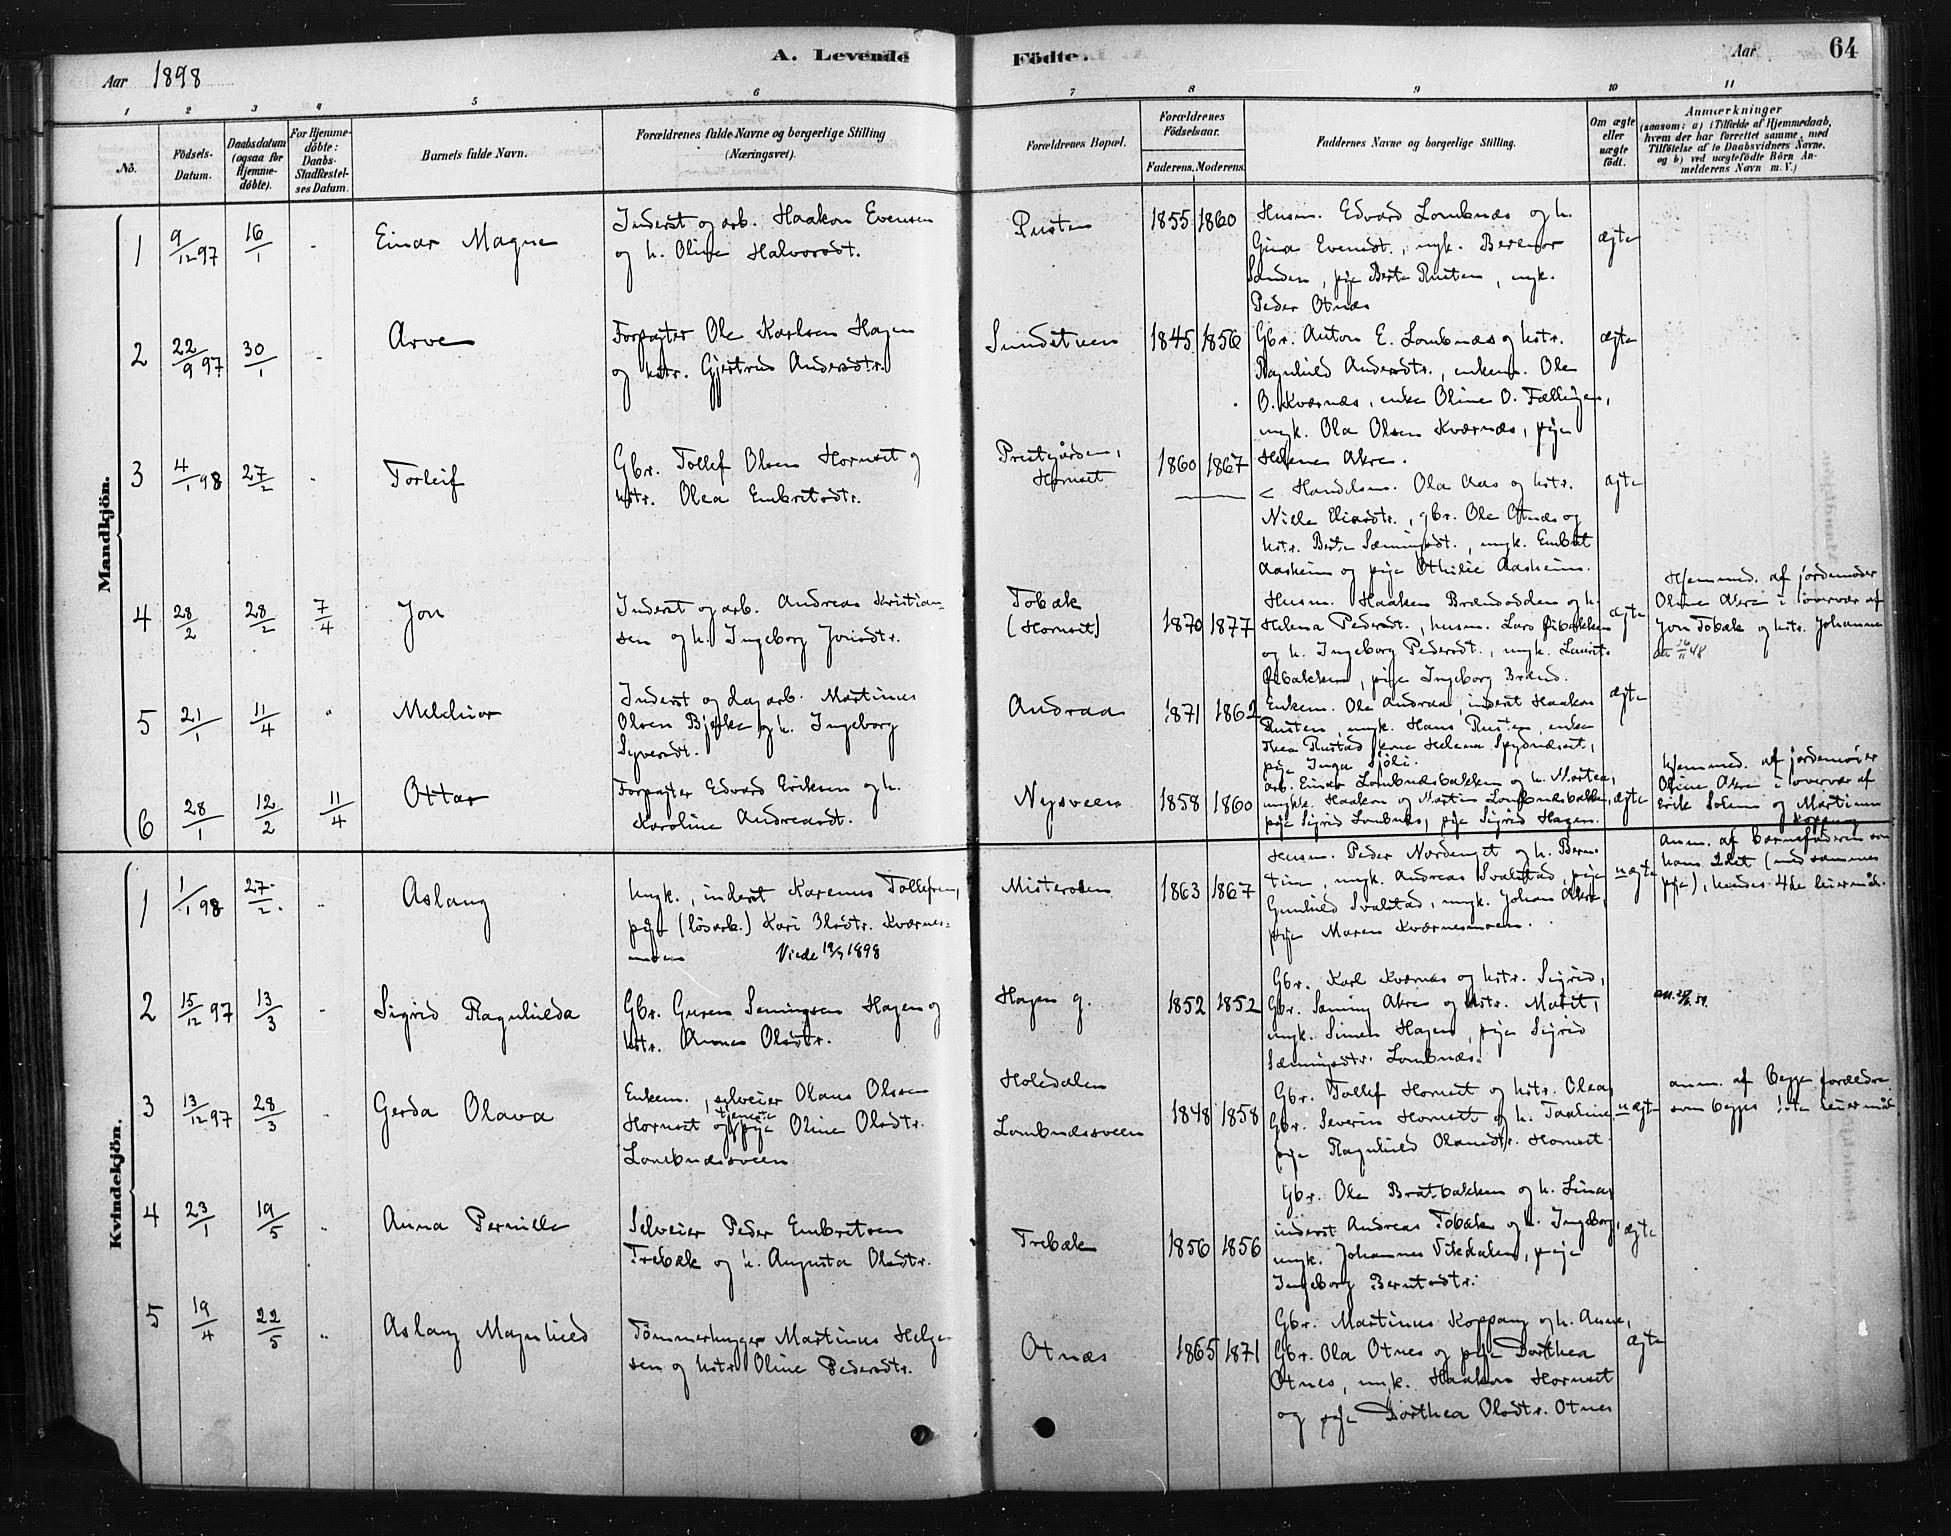 Aar 1898
A. Levende Födte.
Aar
64
1 2 3 4 5 6 7 8 9 10 11
No.
Födsels-Datum.
Daabsdatum (ogsaa for Hjemmedöbte).
For Hjemmedöbte: Daabs-Stadfæstelses Datum.
Barnets fulde Navn.
Forældrenes fulde Navne og borgerlige Stilling (Næringsvei).
Forældrenes Bopæl.
Forældrenes Födselsaar.
Faderens. Moderens.
Faddernes Navne og borgerlige Stilling.
Om ægte eller uægte födt.
Anmærkninger
(saasom: a) i Tilfælde af Hjemmedaab,
hvem der har forrettet samme, med
Tilföielse af to Daabsvidners Navne.
og b) ved uægtefödte Börn Anmelderens Navn m. V.)
Mandkjön.
1 9/12 97 16/1 - Einar Magne
Inderst og arb. Haakon Evensen
og h. Oline Halvorsdt.
Rusten
1855 1860
Husm. Edvard Lombnæs og h.
Gina Evensdt., ungk. Berner
Sanden, pige Berte Rusten, ungk.
Peder Otnæs
ægte
2 22/9 97 30/1 - Arve
Forpagter Ole Karlsen Hagen
og hstr. Gjertrud Andersdtr.
Sundstuen
1845 1856
Gbr. Anton E. Lombnæs og hstr.
Ragnhild Andersdtr., enkem. Ole
O. Kværnæs, enke Oline O. Fællingen,
ungk. Ola Olsen Kværnæs, pige
Helene Akre.
ægte
3 4/1 98 27/2 - Torleif
Gbr. Tollef Olsen Hornset og
hstr. Olea Embretsdtr.
Prestgården, Hornset
1860 1867
Handelsm. Ola Aas og hstr.
Nille Eliasdtr., gbr. Ole Otnæs og
hstr. Berte Sæmingsdt., ungk. Embret
Aasheim og pige Othilie Aasheim.
ægte
4 28/2 28/2 7/4 Jon
Inderst og arb. Andreas Kristian-
sen og h. Ingeborg Jonsdtr.
Tobæk
(Hornset)
1870 1877
Husm. Haaken Brændodden og h.
Helena Pedersdt., husm. Lars Øibakken
og h. Ingeborg Pedersdt., ungk. Laurits
Øibakken, pige Ingeborg Brænd.
ægte
Hjemmed. af jordemoder
Oline Akre i overvær af
Jon Tobæk og hstr. Johanne
5 21/1 11/4 " Melchior
Inderst og dagarb. Martinus
Olsen Bjerke og h. Ingeborg
Syversdt.
Andraa
1871 1862
Enkem. Ole Andraa, inderst Haakon
Rusten, ungk. Hans Rusten, enke
Thea Rustad, kone Helena Spydnæset,
pige Inga Sjöli.
ægte
6 28/1 12/2 11/4 Ottar
Forpagter Edvard Eriksen og h.
Karoline Andreasdt.
Nysveen
1858 1860
arb. Einar Lombnæsbakken og h. Martea,
ungk. Haakon og Martin Lombnæsbakken,
pige Sigrid Lombnæs, pige Sigrid Hagen.
ægte
Hjemmed. af jordemoder
Oline Akre i overvær af
Erik Solem og Martinus
Koppang
Kvindekjön.
1 1/1 98 27/2 " Aslaug
Ungk., inderst Karenus Tollefsen,
pige (lösarb.) Kari Olsdtr. Kværnes-
moen Viede 19/5 1898
Misteroden
1863 1867
Husm. Peder Nordenget og h. Bern-
tine, ungk. Andreas Svalstad, pige
Gunhild Svalstad, ungk. Johan Akre,
pige Maren Kværnesmoen.
uægte
anm. af barnefaderen som
hans 2det (med samme
pige), hendes 4de leiermål.
2 15/12 97 13/3 - Sigrid Ragnhilda
Gbr. Guren Semingsen Hagen og
hstr. Anne Olsdtr.
Hagen g.
1852 1852
Gbr. Karl Kværnæs og hstr. Sigrid,
Gbr. Sæming Akre og hstr. Marit,
ungk. Simen Hagen, pige Sigrid
Sæmingsdtr. Lombnæs.
3 13/12 97 28/3 Gerda Olava
Enkem., selveier Olaus Olsen
Hornset og tjeneste pige Oline Olsdtr.
Lombnæsveen
Holedalen
Lombnæsveen
1848 1858
Gbr. Tollef Hornset og hstr. Olea,
Gbr. Severin Hornset og h. Pauline
pige Ragnhild Olausdtr. Hornset.
uægte
anm. af begge forældre
som begges 1ste leiermål
4 23/1 19/5 " Anna Pernille
Selveier Peder Embretsen
Trebæk og h. Augusta Olsdtr.
Trebæk
1856 1856
Gbr. Ole Bratbakken og h. Lina,
inderst Andreas Tobæk og h. Ingeborg,
ungk. Johannes Vikdalen, pige
Ingeborg Berntsdtr.
ægte
5 19/4 22/5 " Aslaug Magnhild
Tömmerhugger Martinus Helge-
sen og hstr. Oline Pedersdtr.
Otnæs
1865 1871
Gbr. Martinus Koppang og h. Anne,
Gbr. Ola Otnes og pige Dorthea
Otnes, ungk. Haakon Hornset
og pige Dorthea Olsdtr. Otnes
ægte